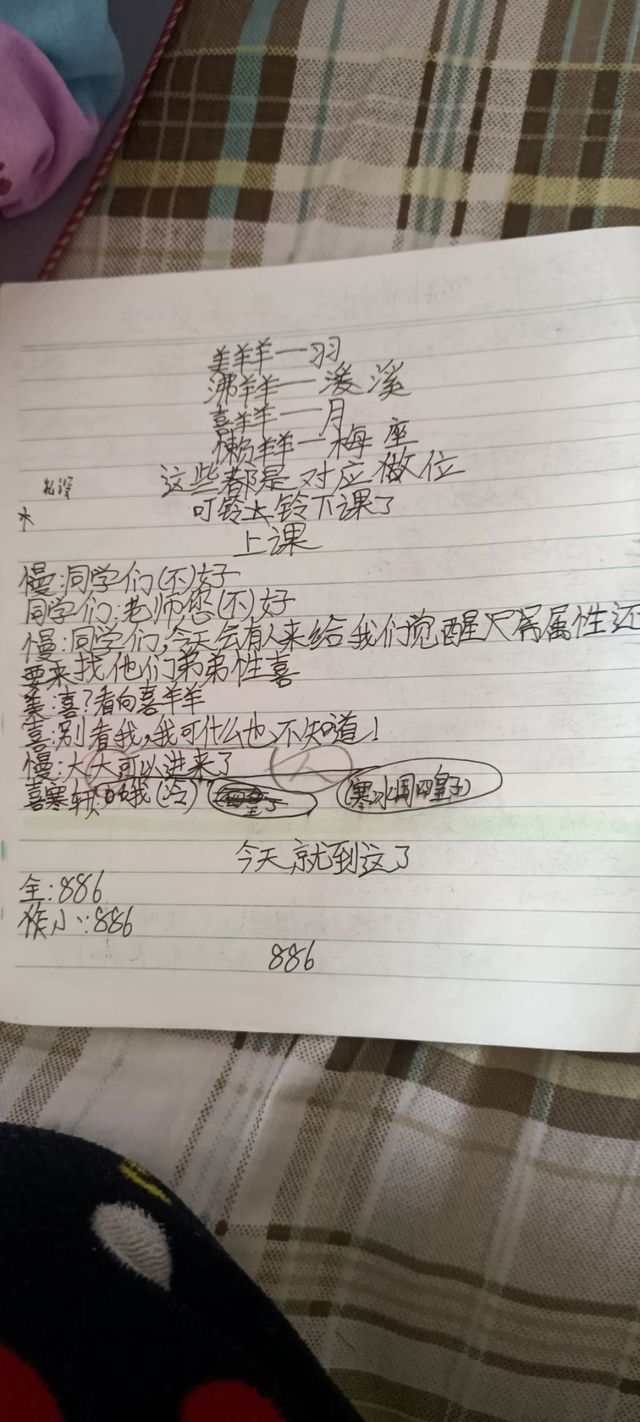 美羊羊一羽
沸羊羊一湲溪
喜羊羊一月
懒羊羊一梅
这些都是对应做位
叮铃大铃下课了
上课
慢:同学们(不)好
同学们:老师您(不)好
慢:同学们,今天会有人来给我们觉醒属性还
要来找他们弟弟性喜
美:喜?看向喜羊羊
喜:别看我,我可什么也不知道!
慢:大大可以进来了
喜寒轩:哦(冷) (寒冰国四皇子)
今天就到这了
全:886
小:886
886